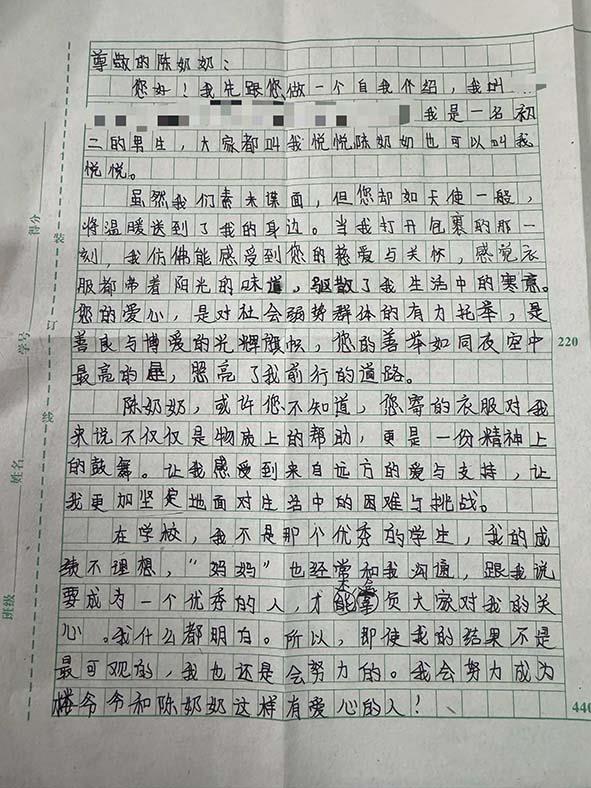 尊敬的陈奶奶：
您好！我先跟您做一个自我介绍，我叫
我是一名初
二的男生，大家都叫我悦悦陈奶奶也可以叫我
悦悦。
虽然我们素未谋面，但您却如天使一般，
将温暖送到了我的身边。当我打开包裹的那一
刻，我仿佛能感受到您的慈爱与关怀，感觉衣
服都带着阳光的味道，驱散了我生活中的寒意。
您的爱心，是对社会弱势群体的有力托举，是
善良与博爱的光辉旗帜，您的善举如同夜空中
最亮的星，照亮了我前行的道路。
陈奶奶，或许您不知道，您寄的衣服对我
来说不仅仅是物质上的帮助，更是一份精神上
的鼓舞。让我感受到来自远方的爱与支持，让
我更加坚定地面对生活中的困难与挑战。
在学校，我不是那个优秀的学生，我的成
绩不理想，“妈妈”也经常和我沟通，跟我说
要成为一个优秀的人，才负大家对我的关
心。我什么都明白。所以，即使我的结果不是
最可观的，我也还是会努力的。我会努力成为
楼爷爷和陈奶奶这样有爱心的人！
220
440
得分
学号
姓名
班级
装
订
线